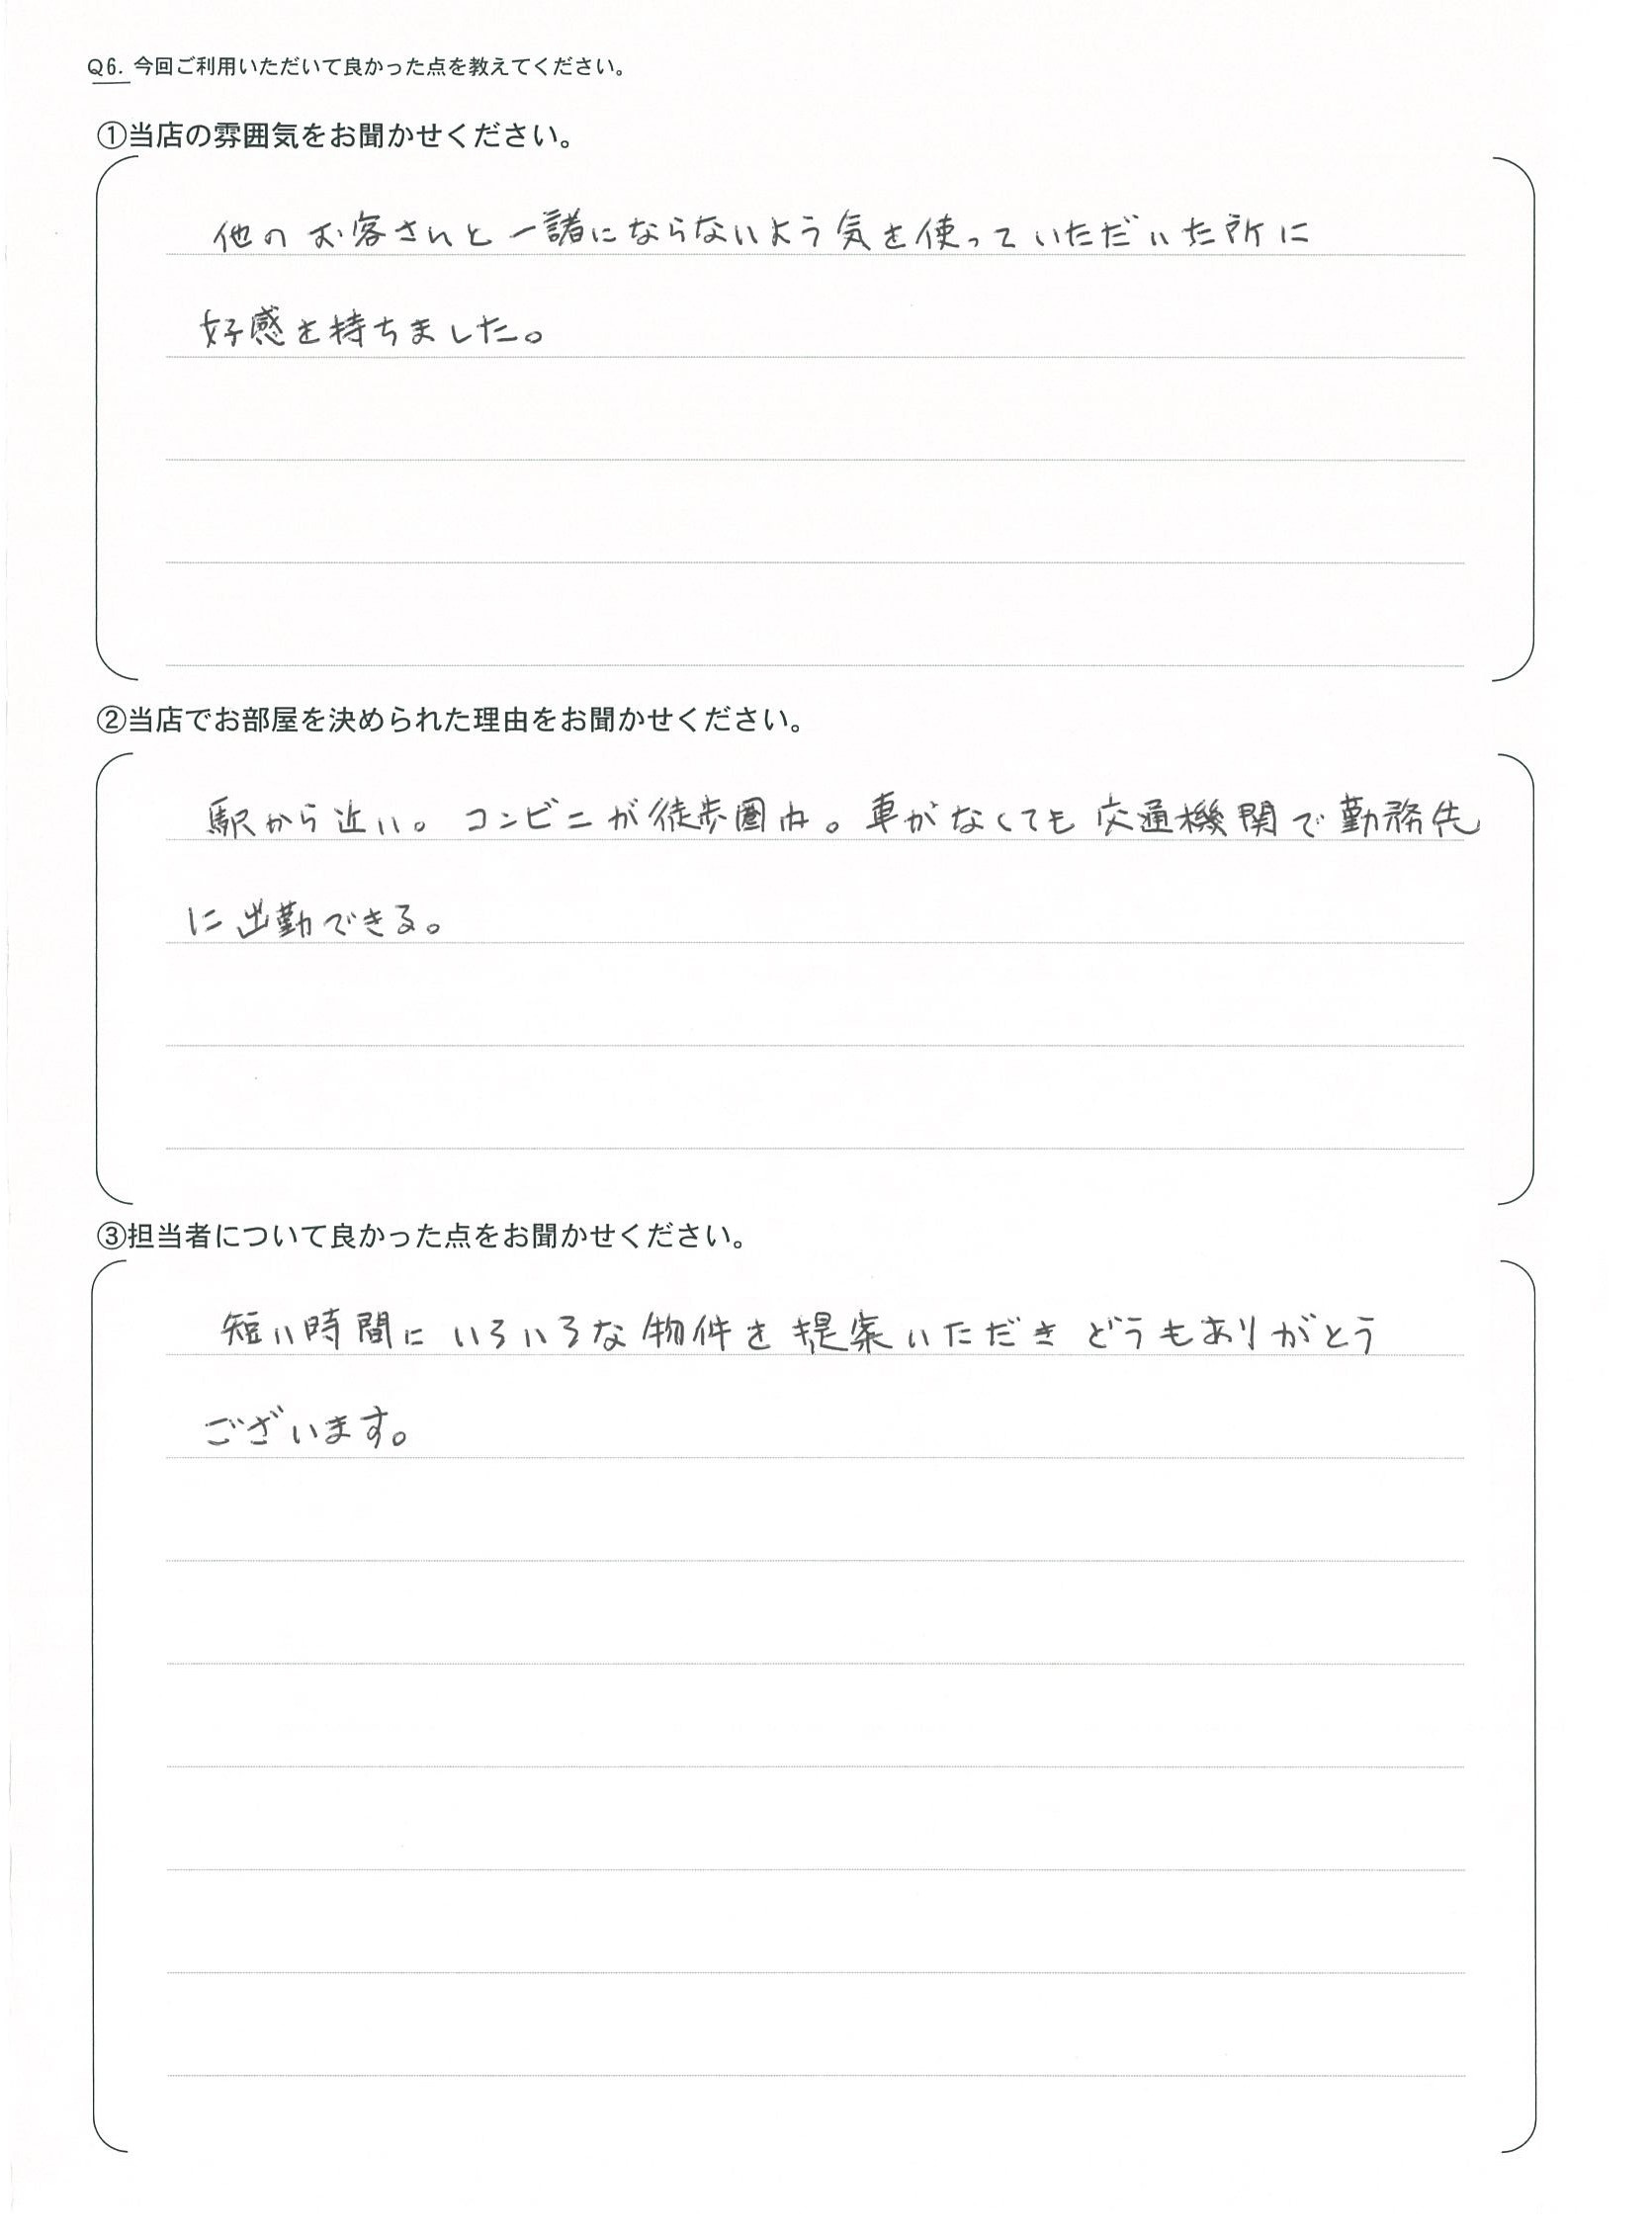 Q6. 今回ご利用いただいて良かった点を教えてください。
①当店の雰囲気をお聞かせください。
他のお客さんと一諸にならないよう気を使っていただいた所に
好感を持ちました。
②当店でお部屋を決められた理由をお聞かせください。
駅から近い。コンビニが徒歩圏内。車がなくても交通機関で勤務先
に出勤できる。
③担当者について良かった点をお聞かせください。
短い時間にいろいろな物件を提案いただきどうもありがとう
ございます。